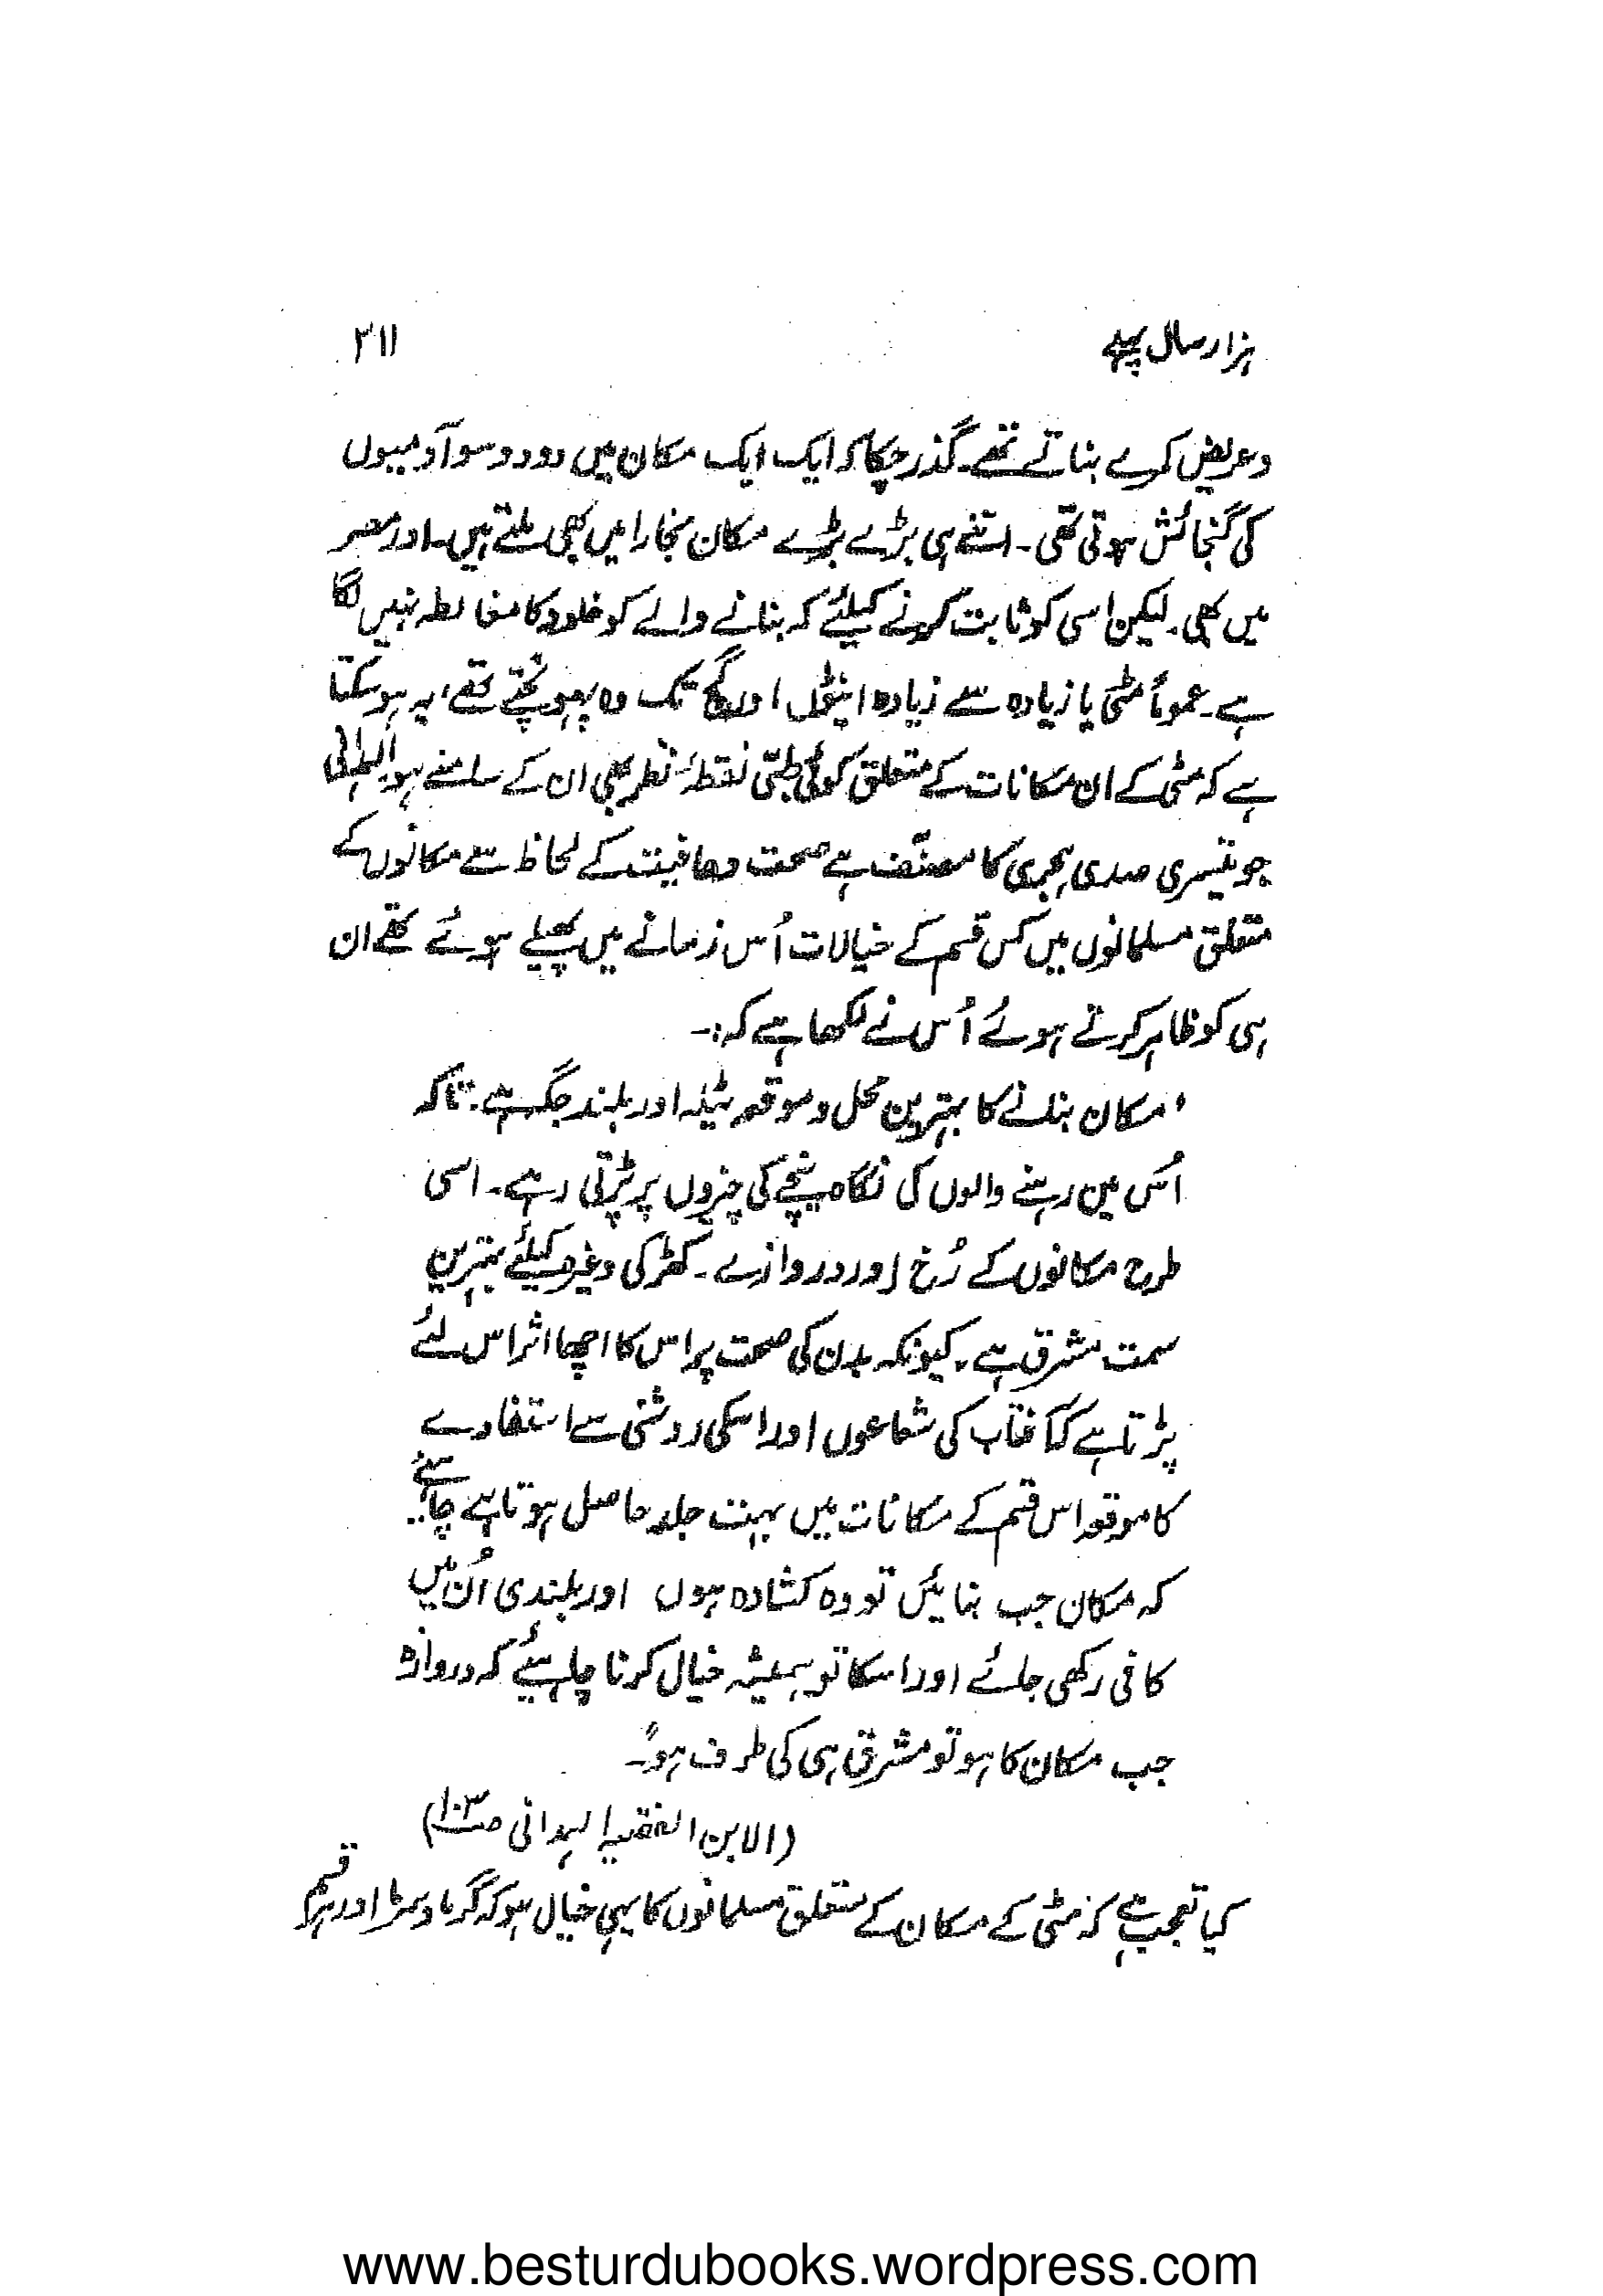 ہزار سال پہلے
۲۱۱
وعریض کمرے بناتے تھے۔ گذر چکا کہ ایک ایک مکان میں دو دو سو آدمیوں
کی گنجائش ہوتی تھی۔ اتنے ہی بڑے بڑے مکان بخارا میں بھی ملتے ہیں۔ اور مصر
میں بھی۔ لیکن اسی کو ثابت کرنے کیلئے کہ بنانے والے کو خلود کا مغالطہ نہیں لگا
ہے۔ عموماً مٹی یا زیادہ سے زیادہ اینٹوں اور گچ تک وہ پہونچتے تھے، یہ ہو سکتا
ہے کہ مٹی کے ان مکانات کے متعلق کوئی طبّی نقطۂ نظر بھی ان کے سامنے ہو،
جو تیسری صدی ہجری کا مصنّف ہے صحت وعافیت کے لحاظ سے مکانوں کے
متعلق مسلمانوں میں کس قسم کے خیالات اُس زمانے میں پھیلے ہوئے تھے ان
ہی کو ظاہر کرتے ہوئے اُس نے لکھا ہے کہ:۔
"مکان بنانے کا بہترین محل وموقعہ ٹیلہ اور بلند جگہ ہے۔ تاکہ
اُس میں رہنے والوں کی نگاہ نیچے کی چیزوں پر پڑتی رہے۔ اسی
طرح مکانوں کے رُخ اور دروازے۔ کھڑکی وغیرہ کیلئے بہترین
سمت مشرق ہے۔ کیونکہ بدن کی صحت پر اس کا اچھا اثر اس لئے
پڑتا ہے کہ آفتاب کی شعاعوں اور اسکی روشنی سے استفادے
کا موقعہ اس قسم کے مکانات میں بہت جلد حاصل ہوتا ہے چاہئے
کہ مکان جب بنائیں تو وہ کشادہ ہوں اور بلندی اُن میں
کافی رکھی جائے اور اسکا تو ہمیشہ خیال کرنا چاہیئے کہ دروازہ
جب مکان کا ہو تو مشرق ہی کی طرف ہو"۔
(الابن الفقیہ الہمدانی صـ۱۰۳)
کیا تعجب ہے کہ مٹی کے مکان کے متعلق مسلمانوں کا یہی خیال ہو کہ گرما وسرما اور ہر قسم
www.besturdubooks.wordpress.com